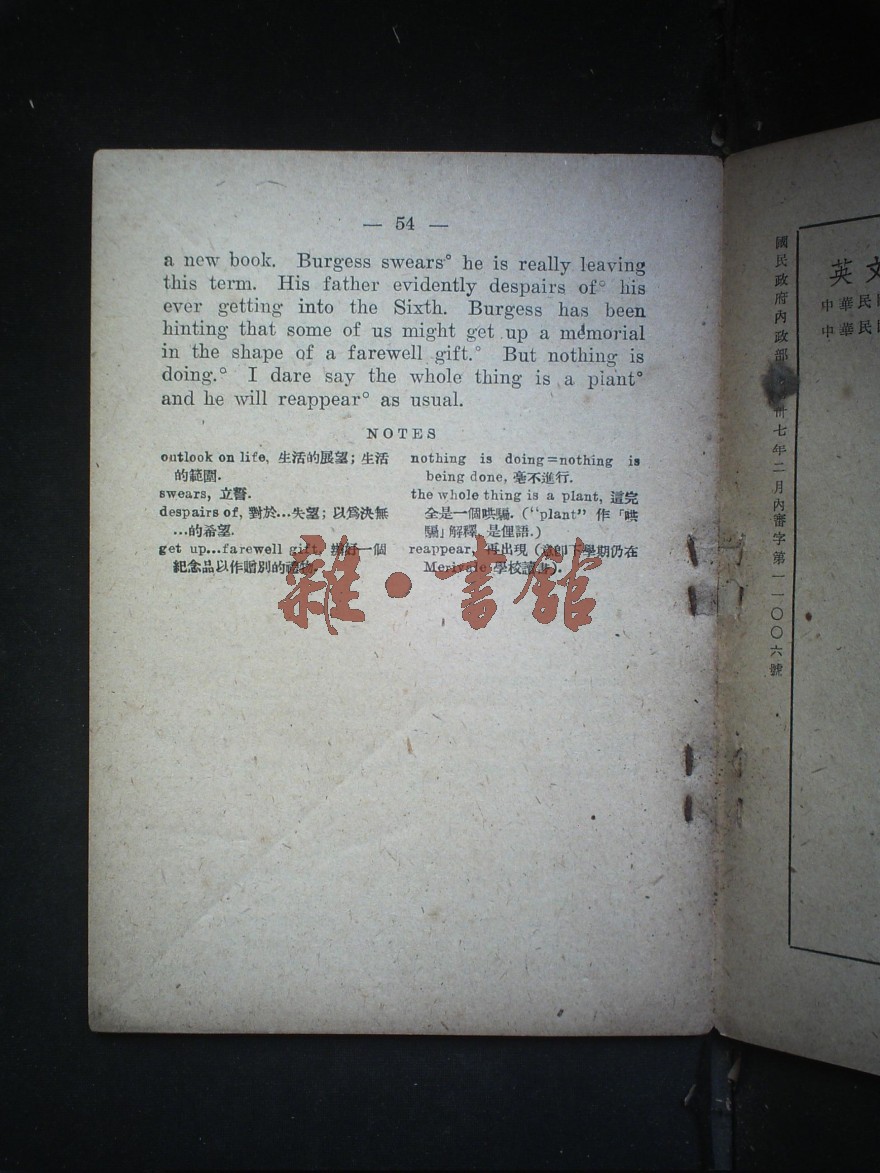 — 54 —
a new book. Burgess swears° he is really leaving
this term. His father evidently despairs of° his
ever getting into the Sixth. Burgess has been
hinting that some of us might get up a memorial
in the shape of a farewell gift.° But nothing is
doing.° I dare say the whole thing is a plant°
and he will reappear° as usual.
NOTES
outlook on life, 生活的展望；生活
的範圍.
swears, 立誓.
despairs of, 對於…失望；以爲決無
…的希望.
get up...farewell gift, 一個
紀念品以作贈別的禮物.
nothing is doing=nothing is
being done, 毫不進行.
the whole thing is a plant, 這完
全是一個哄騙. (“plant” 作「哄
騙」解釋, 是俚語.)
reappear, 再出現 (意卽下學期仍在
Merivale 學校讀書).
雜·書館
國民政府內政部 卅七年二月內審字第一一〇〇六號
英文
中華民國
中華民國